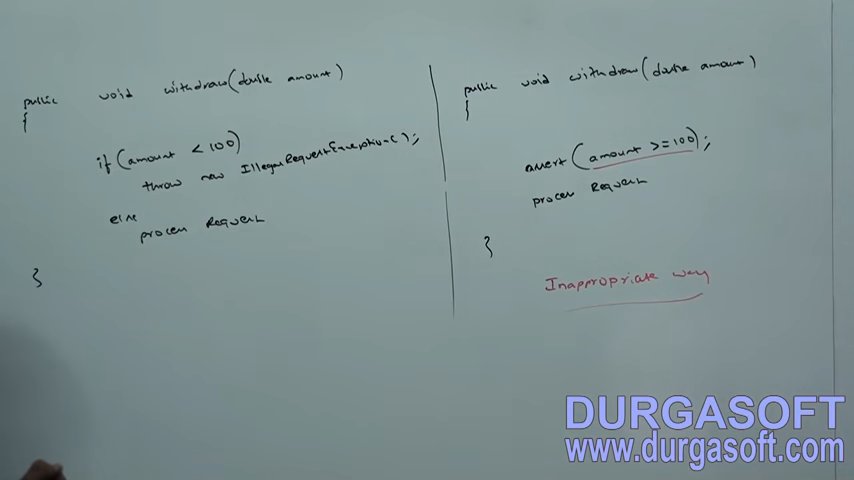 public void withdraw(double amount)
{
if(amount < 100)
throw new IllegalRequestException();
else
process Request
}
public void withdraw(double amount)
{
assert(amount >=100);
process Request
}
Inappropriate way
DURGASOFT
www.durgasoft.com